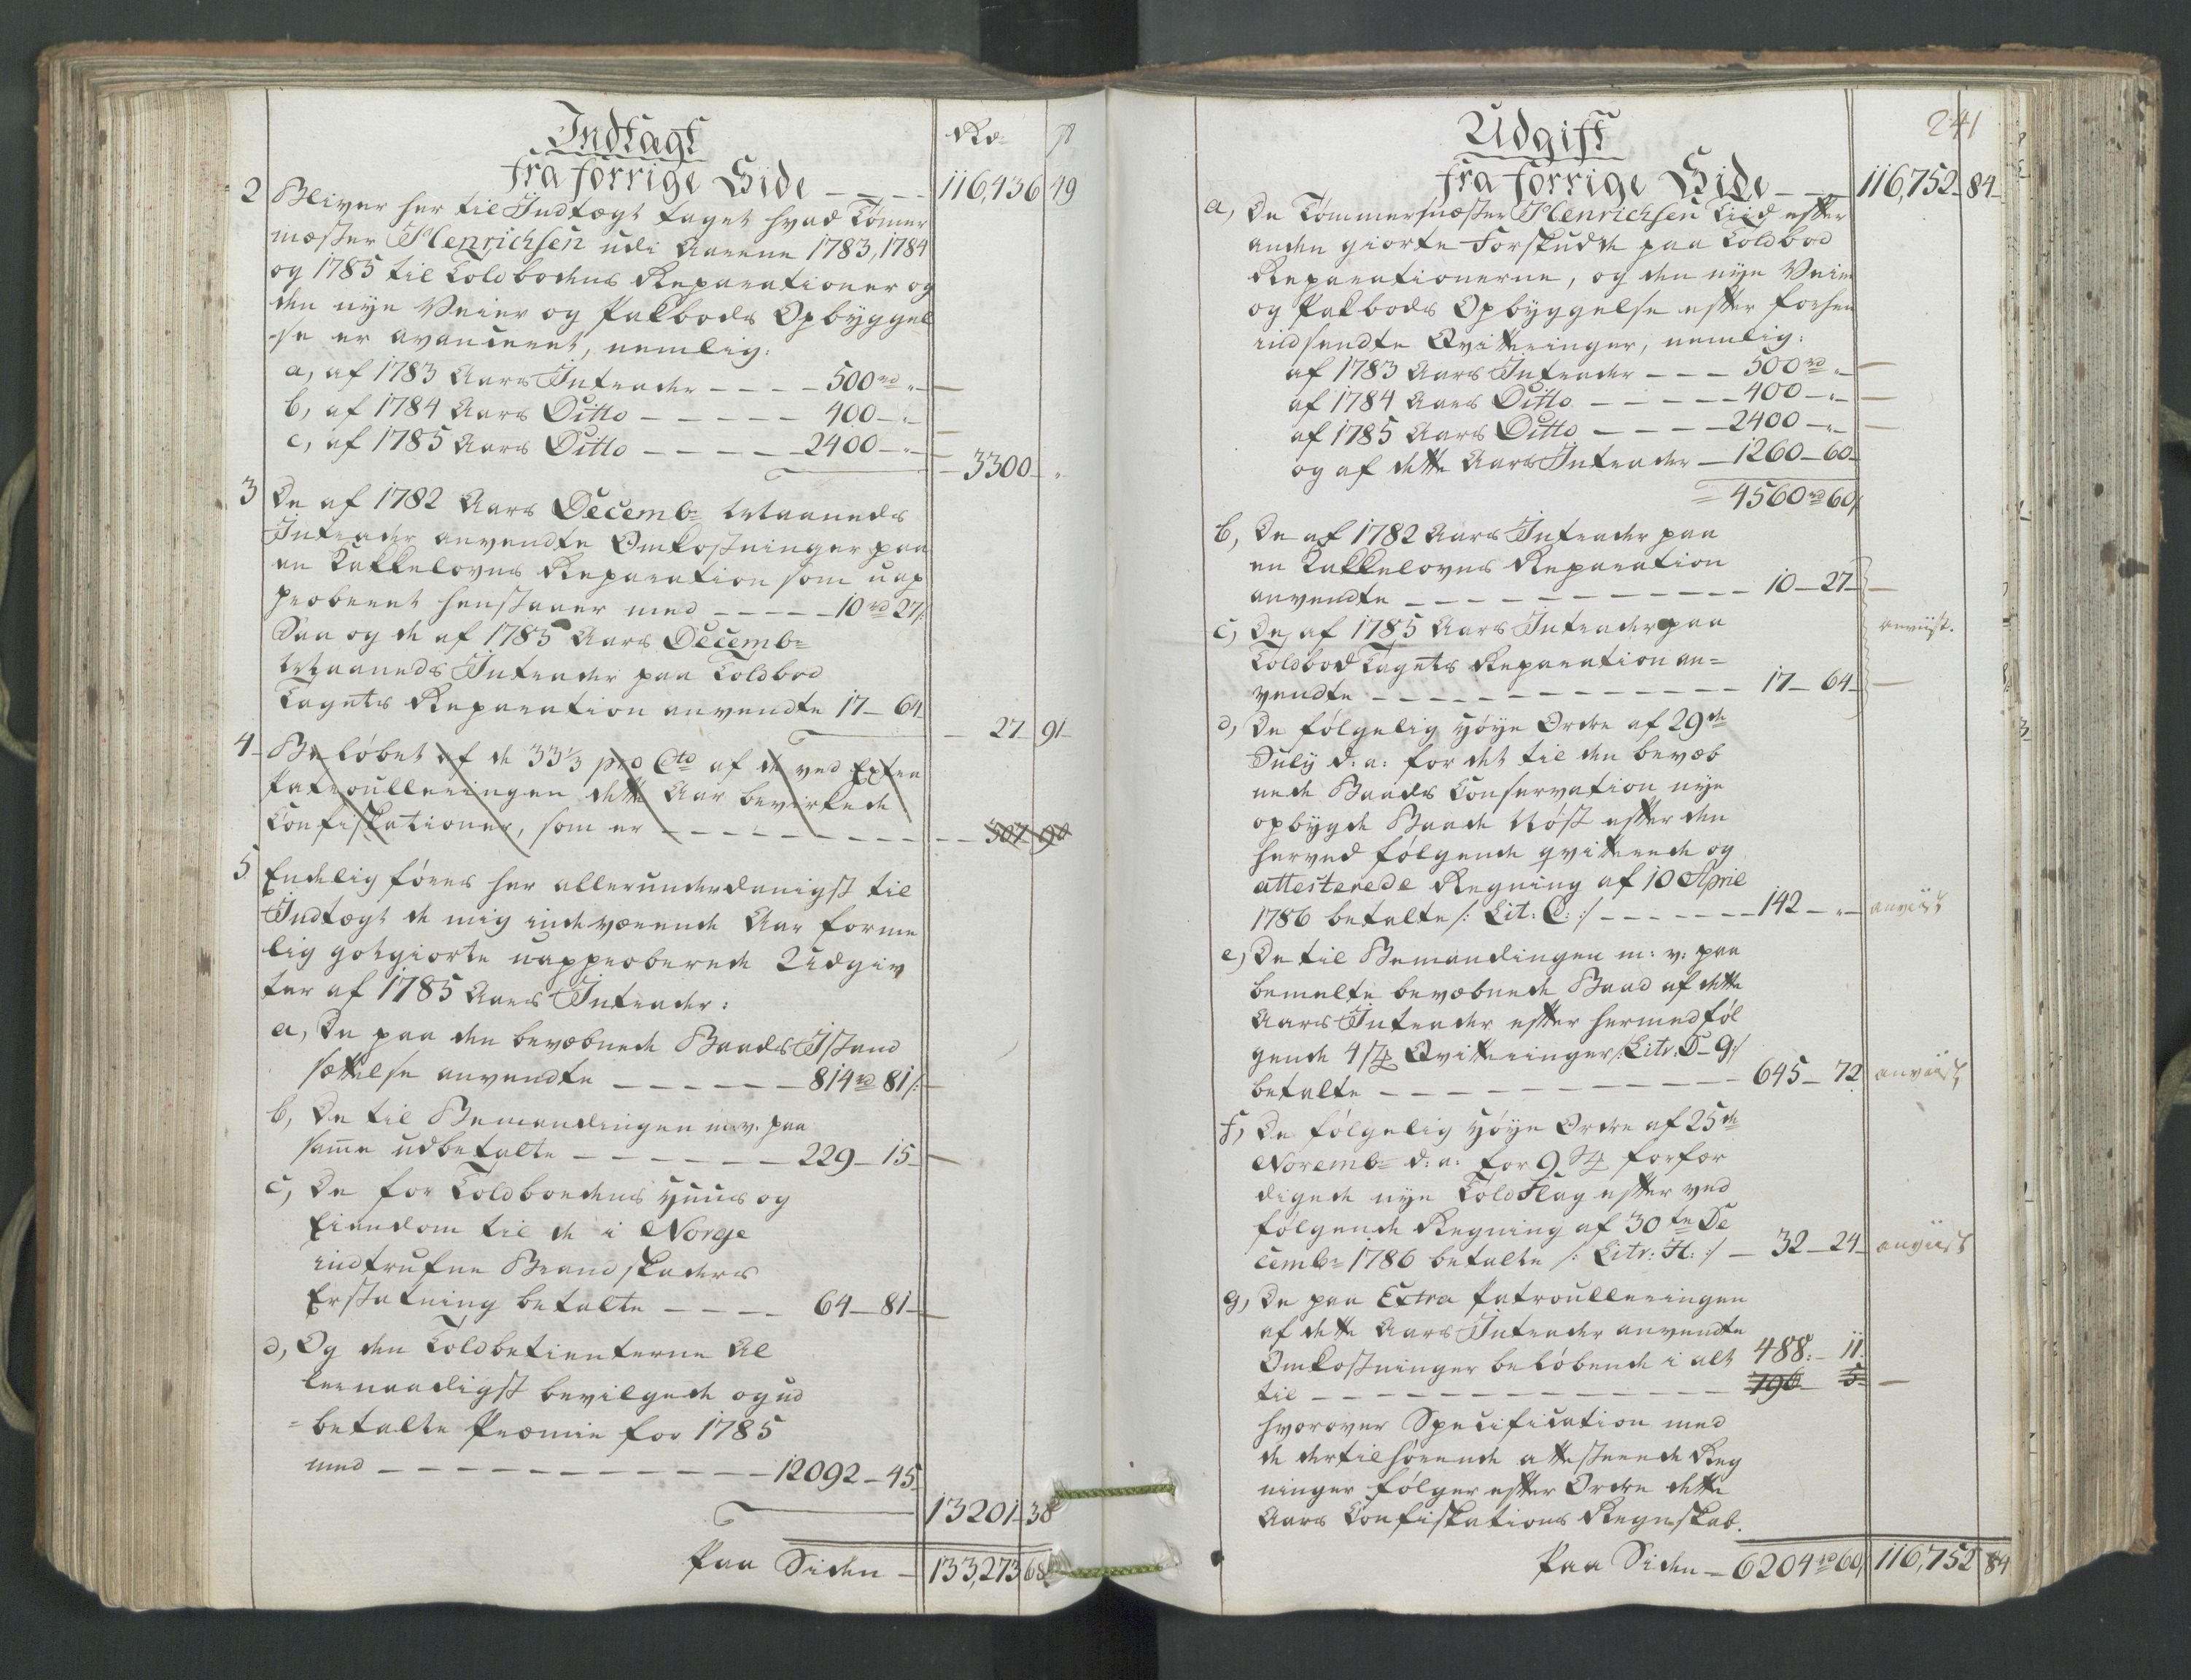 Indtægt
Rd. ß
fra forrige Side - - - - 116,436 49
2 Bliver her til Indtægt taget hvad Tømer
mæster Henrichsen udi Aarene 1783, 1784
og 1785 til Toldbodens Reparationer og
den nye Veier og Pakbods Opbyggel
-se er avanceret, nemlig:
a, af 1783 Aars Intrader - - - - 500 rd „ -
b, af 1784 Aars Ditto - - - - - 400 - „ -
c, af 1785 Aars Ditto - - - - - 2400 - „ -
- 3300 - „
3 De af 1782 Aars Decembr Maaneds
Intrader anvendte Omkostninger paa
en Kakkelovns Reparation som uap
proberet henstaaer med - - - - - 10 rd 27 ß
Saa og de af 1785 Aars Decembr
Maaneds Intrader paa Toldbod
Tagets Reparation anvendte 17 - 64
- 27 - 91 -
4 - Beløbet af de 33 1/3 pro Cto af de ved Extra
Patroulleringen dette Aar bevirkede
Confiskationer, som er - - - - - - - - - 507 - 90
5 Endelig føres her allerunderdanigst til
Indtægt de mig indeværende Aar forme
lig godgiorte uapproberede Udgiv
ter af 1785 Aars Intrader:
a, De paa den bevæbnede Baads Istand
sættelse anvendte - - - - - - 814 rd 81 ß
b, De til Bemandingen m. v. paa
samme udbetalte - - - - - - 229 - 15 -
c, De for Toldboedens Huus og
Eiendom til de i Norge
indtrufne Brandskaders
Erstatning betalte - - - - 64 - 81 -
d, Og den Toldbetienterne Al
lernaadigst bevilgede og ud
= betalte Præmie for 1785
med - - - - - - - - - - - 12092 - 45
13201 - 38
Paa Siden - 133,273 68
241
Udgift
fra forrige Side - - - 116,752 - 84 -
a, De Tømmermæster Henrichsen Tiid efter
anden giorte Forskudde paa Toldbod
Reparationerne, og den nye Veier
og Pakbods Opbyggelse efter forhen
indsendte Qvitteringer, nemlig:
af 1783 Aars Intrader - - - 500 rd „ -
af 1784 Aars Ditto - - - - - 400 - „ -
af 1785 Aars Ditto - - - - 2400 - „ -
og af dette Aars Intrader - 1260 - 60 -
= 4560 rd 60 ß
b, De af 1782 Aars Intrader paa
en Kakkelovns Reparation
anvendte - - - - - - - - - - 10 - 27 -
c, De af 1785 Aars Intrader paa anviist.
Toldbod Tagets Reparation an=
vendte - - - - - - - - - - - 17 - 64 -
d, De følgelig Høye Ordre af 29de
July d: a: for det til den bevæb
nede Baads Conservation nye
opbygde Baade Nøst efter den
herved følgende qvitterede og
attesterede Regning af 10 April
1786 betalte /: Lit: C: :/ - - - - - - 142 - „ - anviist
e, De til Bemandingen m: v: paa
bemelte bevæbnede Baad af dette
Aars Intrader efter hermed føl
gende 4 Stk Qvitteringer /: Litr: D - G :/
betalte - - - - - - - - - - - 645 - 72 anviist
f, De følgelig Høye Ordre af 25de
Novembr d: a: for 9 Stk forfær
digede nye Told Flag efter ved
følgende Regning af 30te De
cembr 1786 betalte /: Litr: H: :/ - 32 - 24 - anviist
g, De paa Extra Patroulleringen
af dette Aars Intrader anvendte
Omkostninger beløbende i alt 488: - 11.
til - - - - - - - - - - - - - 796 - 5 -
hvorover Specification med
de dertilhørende attesterede Reg
ninger følger efter Ordre dette
Aars Confiskations Regnskab.
Paa Siden - 6204 rd 60 ß 116,752 84